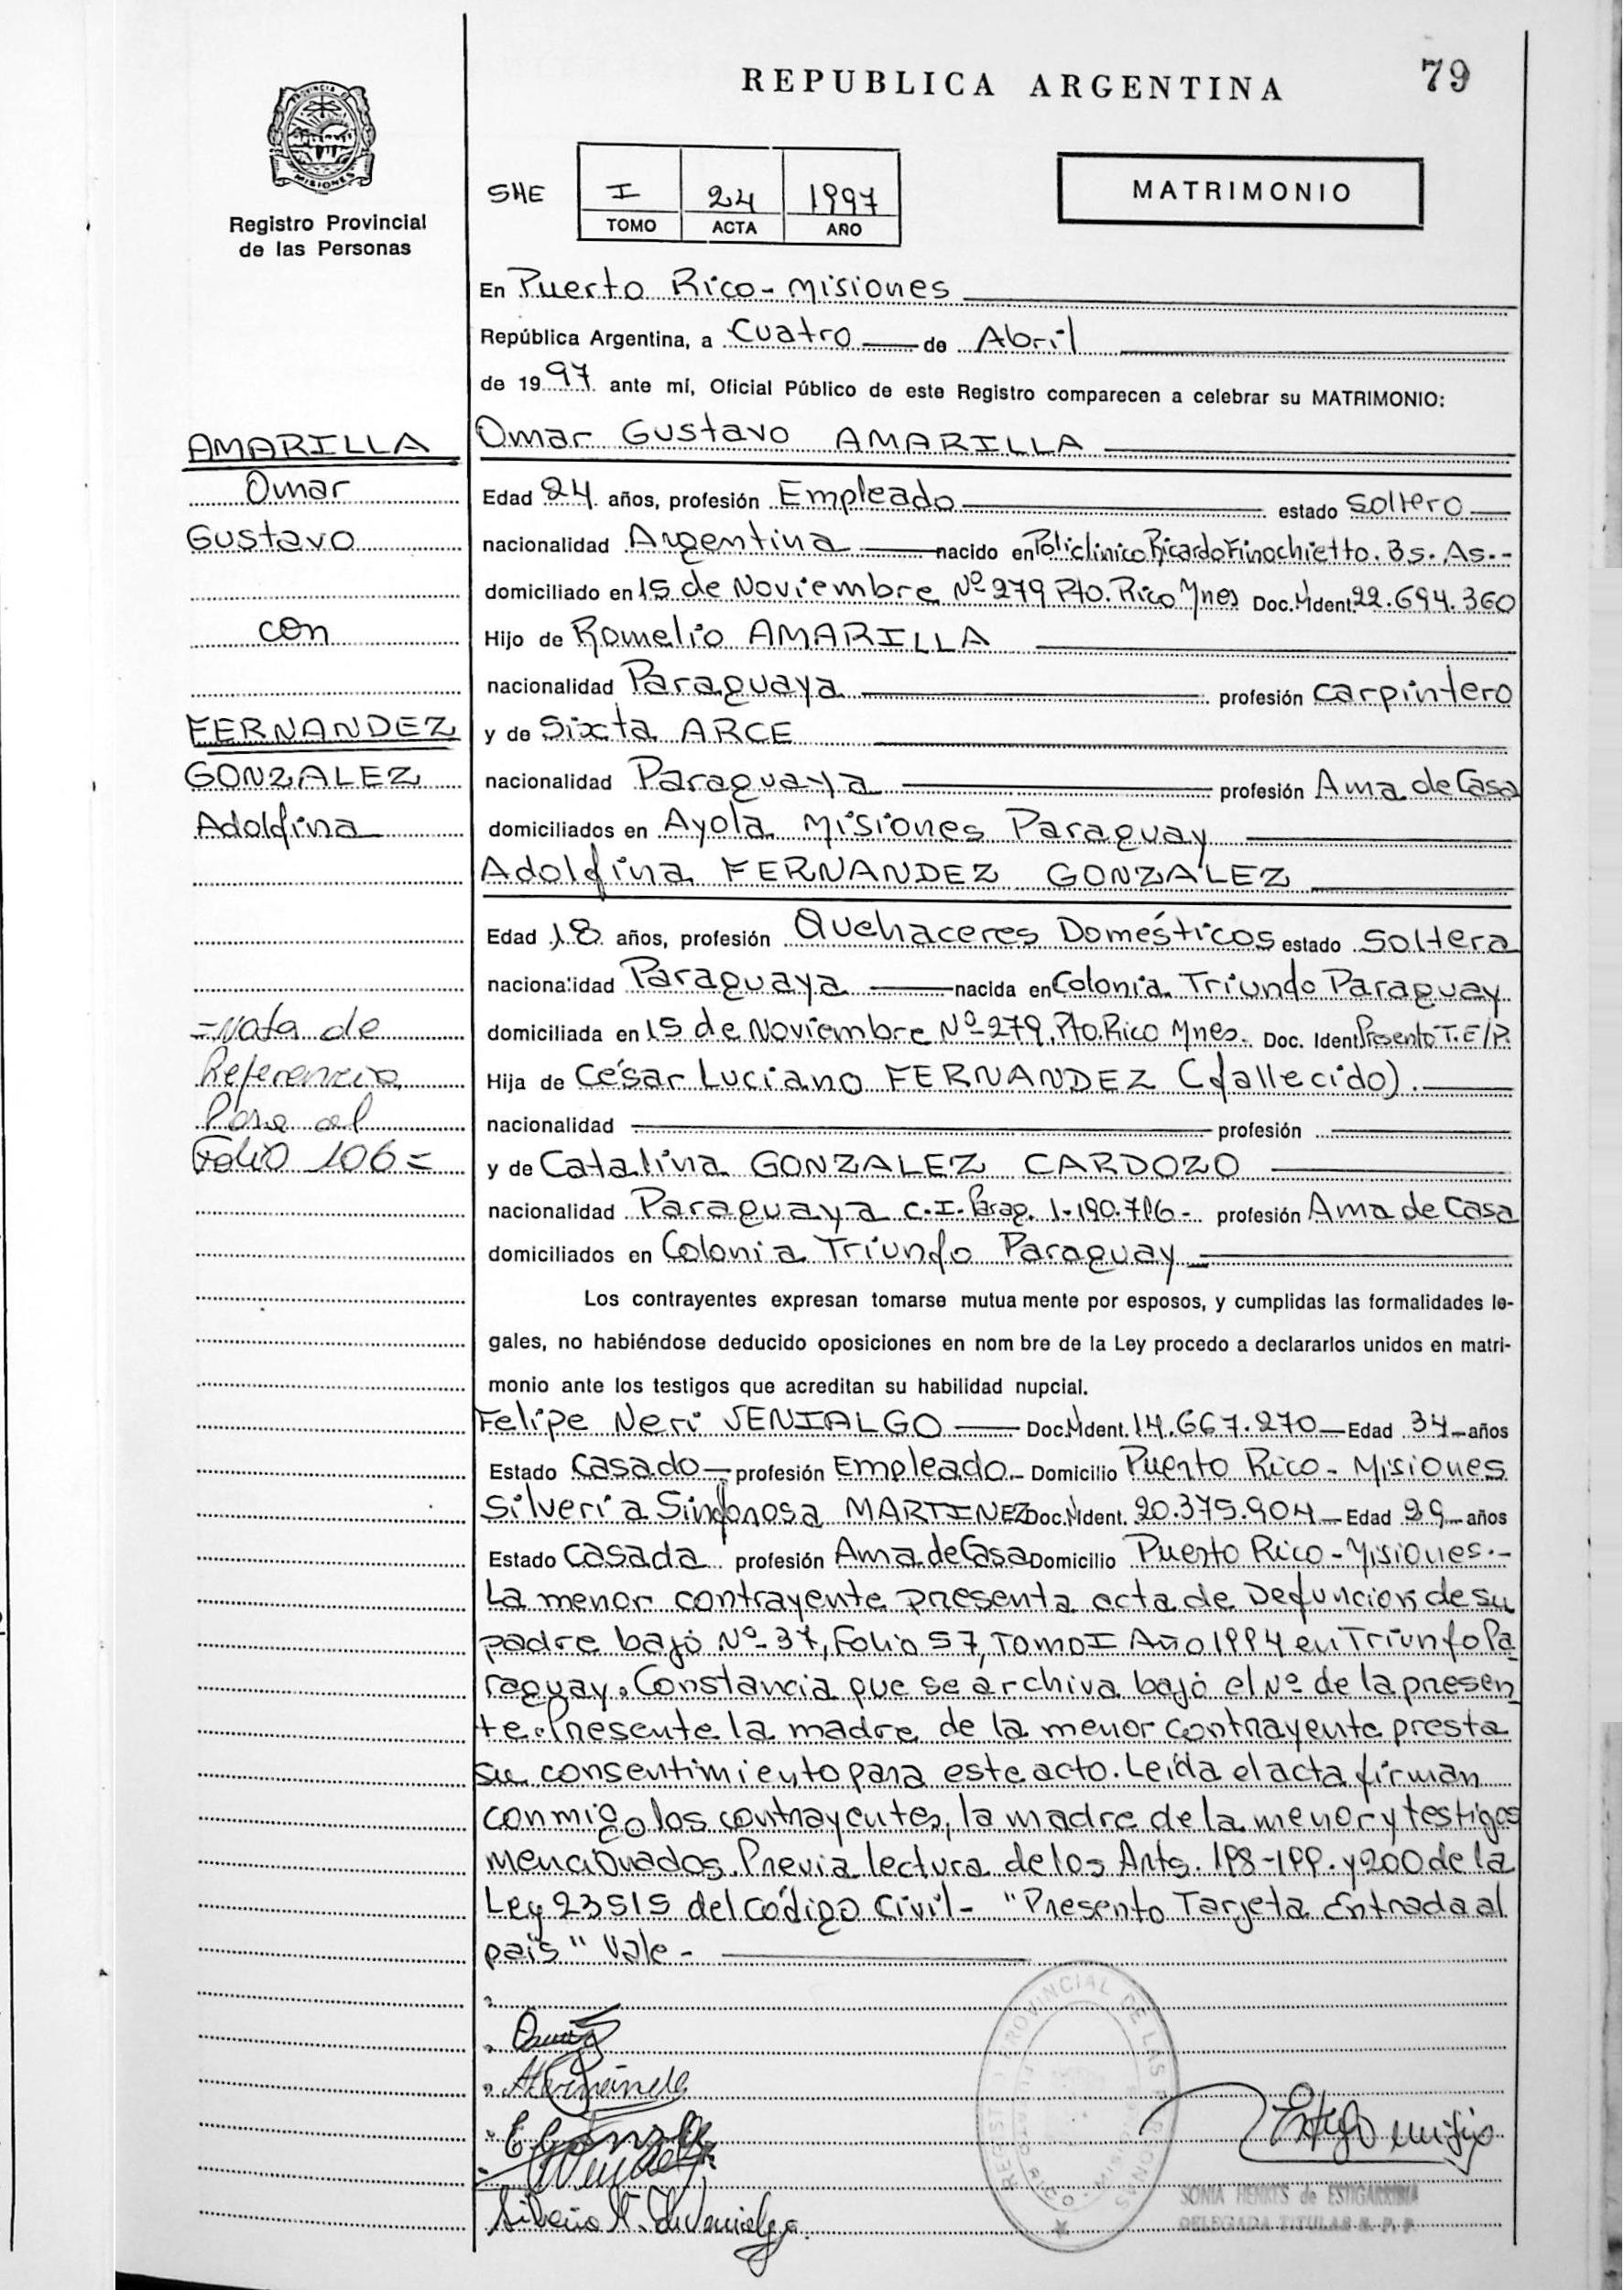 REPUBLICA ARGENTINA
79
Registro Provincial
de las Personas
MISIONES
SHE
I
24
1997
TOMO
ACTA
AÑO
MATRIMONIO
En Puerto Rico - Misiones
República Argentina, a Cuatro de Abril
de 1997 ante mí, Oficial Público de este Registro comparecen a celebrar su MATRIMONIO:
AMARILLA
Omar
Gustavo
con
FERNANDEZ
GONZALEZ
Adolfina
=Nota de
Referencia
Pasa al
Folio 106=
Omar Gustavo AMARILLA
Edad 24 años, profesión Empleado estado soltero
nacionalidad Argentina nacido en Policlinico Ricardo Finochietto. Bs. As.-
domiciliado en 15 de Noviembre Nº 279 Pto. Rico Mnes Doc. Ident. 22.694.360
Hijo de Romelio AMARILLA
nacionalidad Paraguaya profesión carpintero
y de Sixta ARCE
nacionalidad Paraguaya profesión Ama de Casa
domiciliados en Ayola Misiones Paraguay
Adolfina FERNANDEZ GONZALEZ
Edad 18 años, profesión Quehaceres Domésticos estado soltera
nacionalidad Paraguaya nacida en Colonia Triunfo Paraguay
domiciliada en 15 de Noviembre Nº 279, Pto. Rico Mnes. Doc. Ident. Presentó T.E/P.
Hija de César Luciano FERNANDEZ (fallecido).
nacionalidad profesión
y de Catalina GONZALEZ CARDOZO
nacionalidad Paraguaya C.I. Parag. 1.190.716- profesión Ama de Casa
domiciliados en Colonia Triunfo Paraguay
Los contrayentes expresan tomarse mutua mente por esposos, y cumplidas las formalidades le-
gales, no habiéndose deducido oposiciones en nom bre de la Ley procedo a declararlos unidos en matri-
monio ante los testigos que acreditan su habilidad nupcial.
Felipe Neri VENIALGO Doc. Ident. 14.667.270 Edad 34 años
Estado casado profesión Empleado Domicilio Puerto Rico - Misiones
Silveria Sinforosa MARTINEZ Doc. Ident. 20.375.904 Edad 29 años
Estado casada profesión Ama de Casa Domicilio Puerto Rico - Misiones.-
La menor contrayente presenta acta de Defuncion de su
padre bajo Nº 37, Folio 57, Tomo I Año 1994 en Triunfo Pa
raguay. Constancia que se archiva bajo el Nº de la presen
te. Presente la madre de la menor contrayente presta
su consentimiento para este acto. Leida el acta firman
conmigo los contrayentes, la madre de la menor y testigos
mencionados. Previa lectura de los Arts. 198-199. y 200 de la
Ley 23515 del código Civil- "Presento Tarjeta Entrada al
pais" Vale -
REGISTRO PROVINCIAL DE LAS PERSONAS
SONIA HENRYS de ESTIGARRIBIA
DELEGADA TITULAR R. P. P.